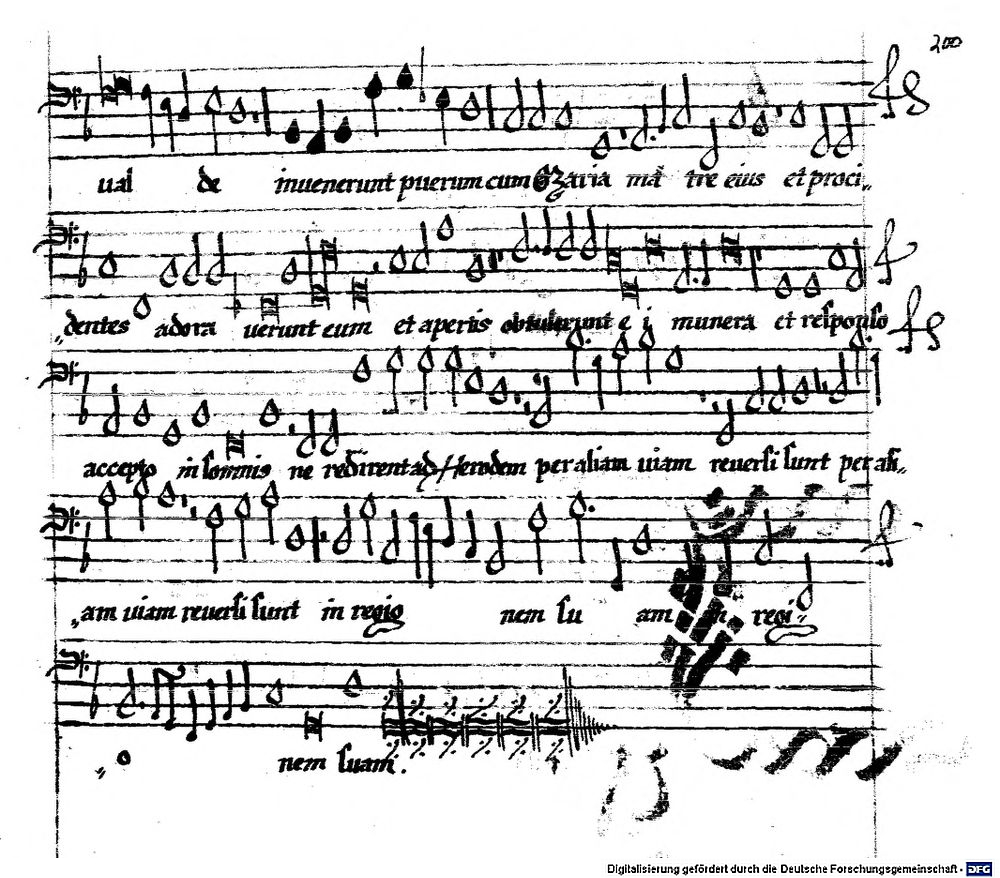 200
ual de inuenerunt puerum cum Maria mā tre eius et proci„
„dentes adora uerunt eum et apertis obtulerunt e i munera et responso
accepto in somnis ne redirent ad Herodem per aliam uiam reuersi sunt per ali„
„am uiam reuersi sunt in regio nem su am in regi„
„o nem suam.
Digitalisierung gefördert durch die Deutsche Forschungsgemeinschaft - DFG